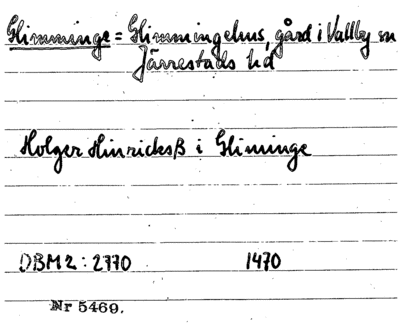 Glimminge = Glimmingehus, gård i Vallby sn
Järrestads hd
Holger Hinricksß i Gliminge
DBM 2: 2770 1470
Nr 5469.